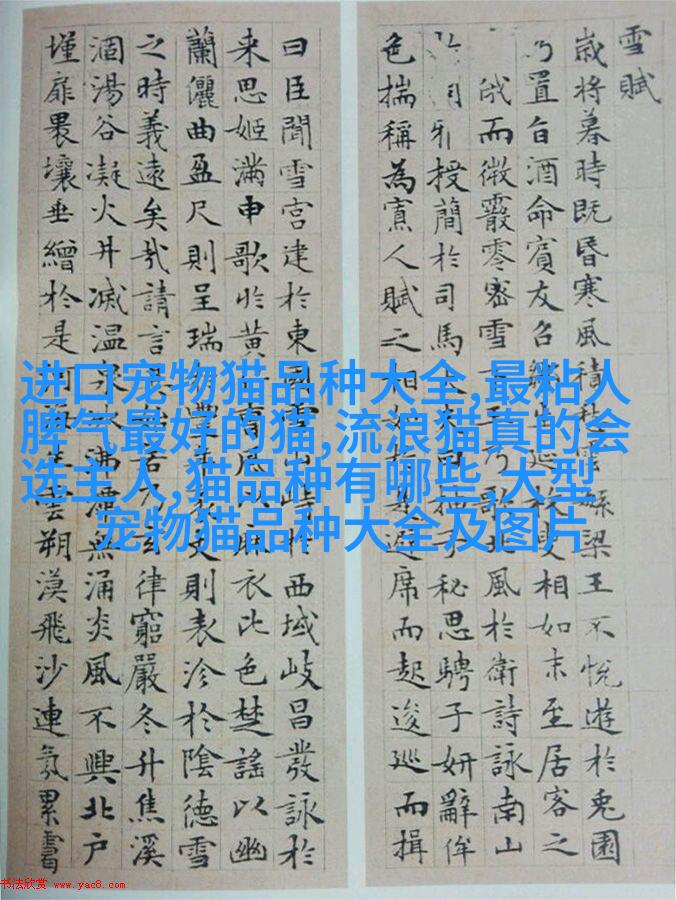 雪賦
歲将暮時既昏寒風積雲繇梁王不悅遊於兎園
乃置旨酒命賓友召延枚叟相如末至居客之
俄而微霰零密雪王乃歌北風於衛詩詠南山
雅授簡於司馬大抽子秘思騁子妍辭侔
色揣稱為寡人賦之相如避席而起逡巡而揖
曰臣聞雪宮建於東國雪山峙於西域岐昌發詠於
来思姬滿申歌於黃風以麻衣比色楚謠以幽
蘭儷曲盈尺則呈瑞豐年袤則表沴於陰德雪
之時義遠矣哉請言若乃玄律窮嚴冬升焦溪
涸湯谷凝火井滅温泉沸潭無涌炎風不興北户
墐扉壤垂繒於是海生雲朔漠飛沙連氛累靄
进口宠物猫品种大全,最粘人
脾气最好的猫,流浪猫真的会
选主人,猫品种有哪些,大型
宠物猫品种大全及图片
书法欣赏 www.yac8.com